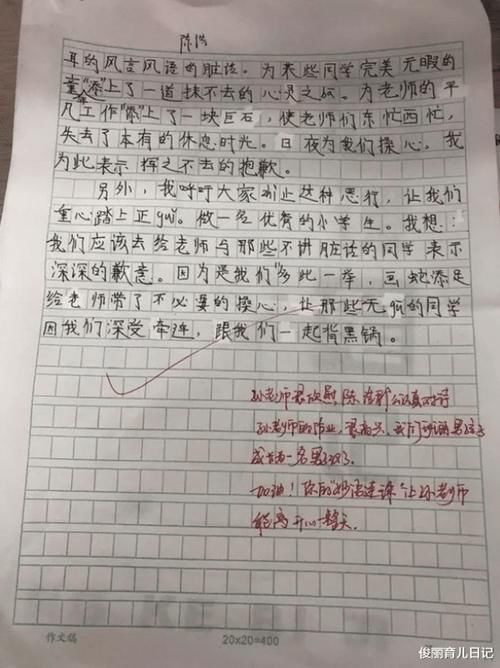 陈浩
耳的风言风语的脏话。为某些同学完美无暇的
童年“添”上了一道抹不去的心灵之
为老师的平
凡工作“添”上了一块巨石,使老师们东忙西忙,
失去了本有的休息时光。日夜为我们操心。我
为此表示挥之不去的抱歉。
另外,我呼吁大家制止这种恶行,让我们
重心踏上正gui。做一名优秀的小学生。我想:
我们应该去给老师与那些不讲脏话的同学表示
深深的歉意。因为是我们“多此一举,画蛇添足
给老师带了不必要的操心,让那些无gu的同学
因我们深受牵连,跟我们一起背黑锅。
孙老师很欣慰,陈浩能认真对待
孙老师的作业,很高兴,我们班的男孩子
成长为一名男子汉了。
加油!你的“妙语连珠”让孙老师
能高兴一整天。
作文稿
20×20=400
俊丽育儿日记